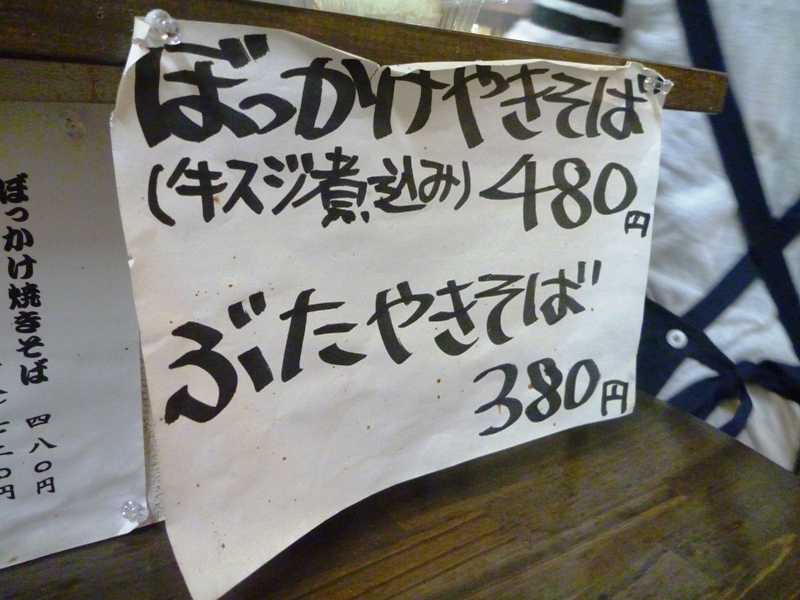 ぼっかけやきそば
(牛スジ煮込み) 480円
ぶたやきそば
380円
ぼっかけ焼きそば 四八〇円